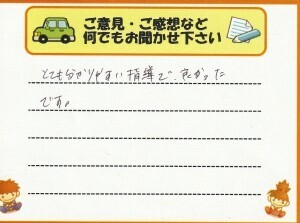 ご意見・ご感想など
何でもお聞かせ下さい
とても分かりやすい指導で、良かった
です。